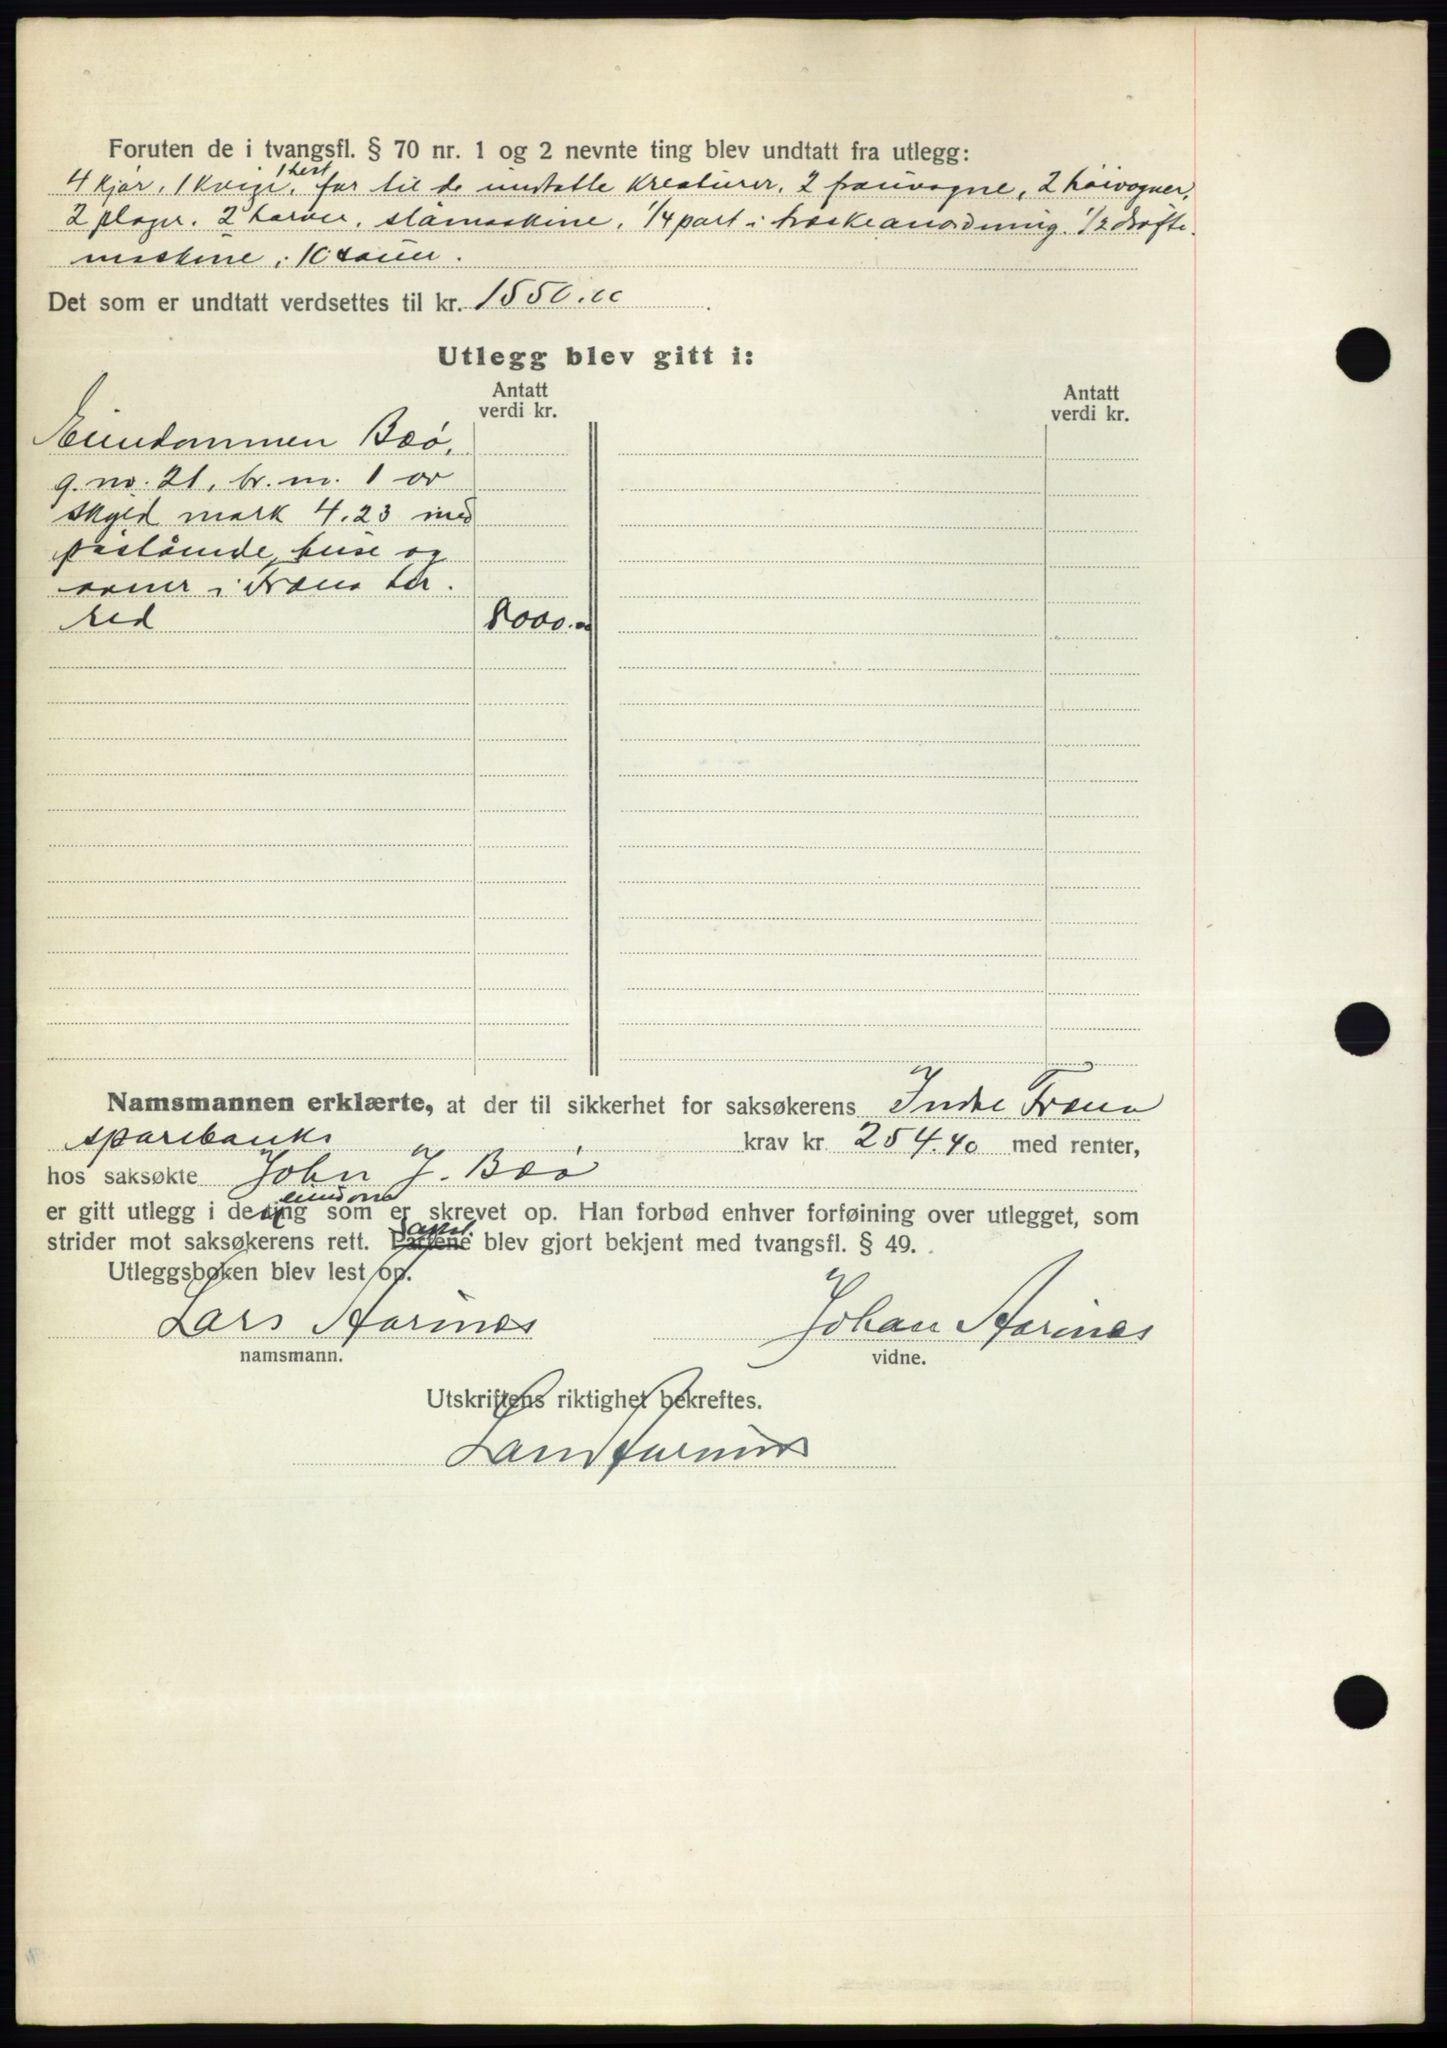 Foruten de i tvangsfl. § 70 nr. 1 og 2 nevnte ting blev undtatt fra utlegg:
1 hest
4 kjør, 1 kvige, for til de undtatte kreaturer, 2 2 høivogner,
2 ploger. 2 harver, slåmaskine, 1/4 part i træskeanordning. 1/2 drøfte-
maskine, 10 sauer.
Det som er undtatt verdsettes til kr. 1550.00
Utlegg blev gitt i:
Antatt verdi kr.
Antatt verdi kr.
Eiendommen Bøø,
g. no. 21, br. nr. 1 av
skyld mark 4.23 med
påståande huse og
i Fræna her-
red 8000.00
Namsmannen erklærte, at der til sikkerhet for saksøkerens Indre Fræna
sparebanks krav kr. 254.40 med renter,
hos saksøkte John J. Bøø
eiendom
er gitt utlegg i de ting som er skrevet op. Han forbød enhver forføining over utlegget, som
Sakst.
strider mot saksøkerens rett. Partene blev gjort bekjent med tvangsfl. § 49.
Utleggsboken blev lest op.
Lars Aarinæs Johan Aarinæs
namsmann. vidne.
Utskriftens riktighet bekreftes.
Lars Aarinæs